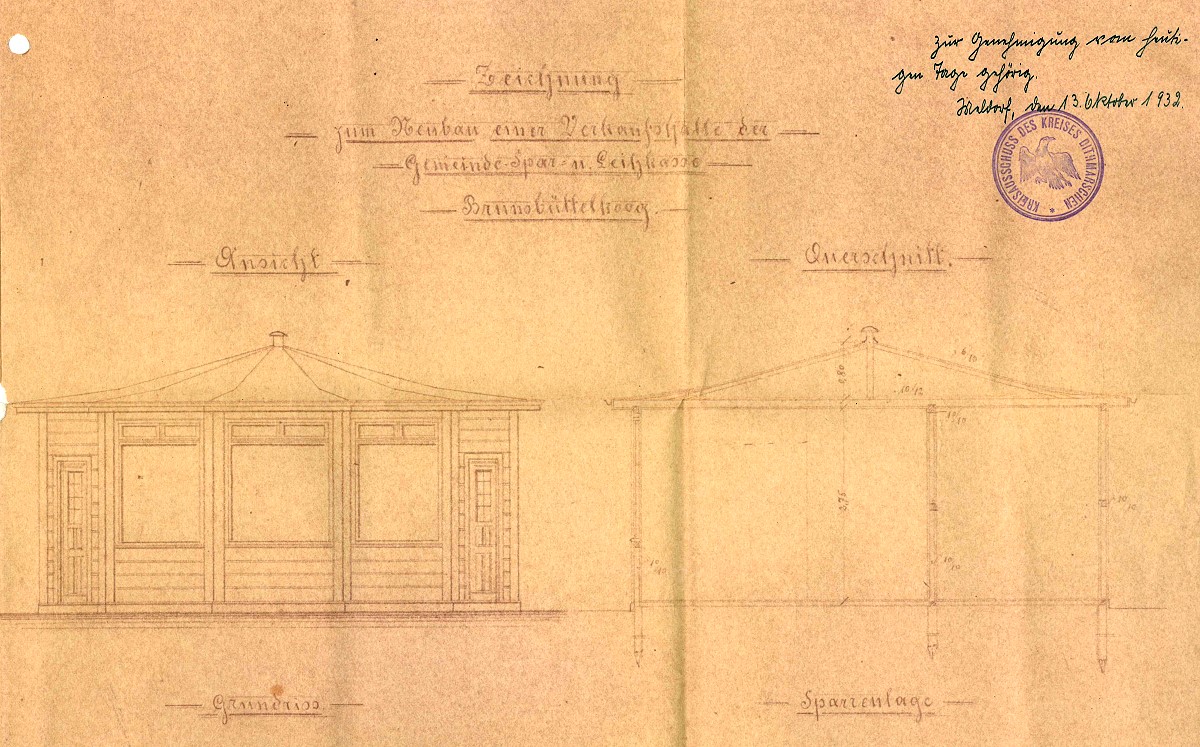 zur Genehmigung vom heuti-
gen Tage gehörig.
Meldorf, den 13. Oktober 1932.
KREISAUSSCHUSS DES KREISES DITHMARSCHEN *
Zeichnung
zum Neubau einer Verkaufshalle der
Gemeinde-Spar- u. Leihkasse
Brunsbüttelkoog.
Ansicht
Querschnitt.
10/12
10/10
3,75
10/10
10/10
10/10
Grundriss
Sparrenlage